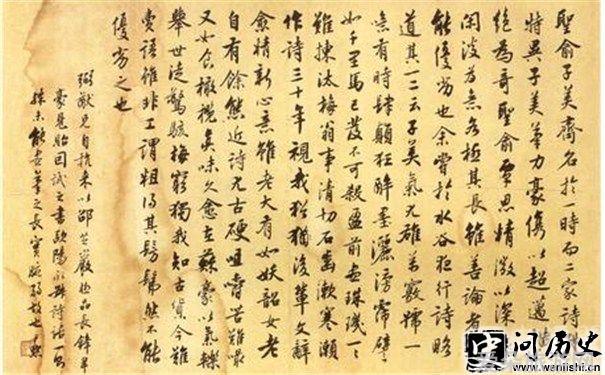 聖俞子美齊名於一時而二家詩
特異子美筆力豪儁以超邁
絕為奇聖俞覃思精微以深
閑淡為意各極其長雖善論者
能優劣也余嘗於水谷夜行詩略
道其一二云子美氣尤雄萬竅號一
噫有時肆顛狂醉墨灑滂霈譬
如千里馬已發不可殺盈前盡珠璣一一
難揀汰梅翁事清切石齒漱寒瀨
作詩三十年視我猶後輩文辭
愈精新心意雖老大有如妖韶女老
自有餘態近詩尤古硬咀嚼苦難嘬
又如食橄欖真味久愈在蘇豪以氣轢
舉世徒驚駭梅窮獨我知古貨今難
賣語雖非工謂粗得其髣髴然不能
優劣之也
兄自攜來以邵芝巖品長鋒羊
毫見貽因試之書歐陽永叔詩話一
殊未能盡筆之長實腕弱故也
问历史